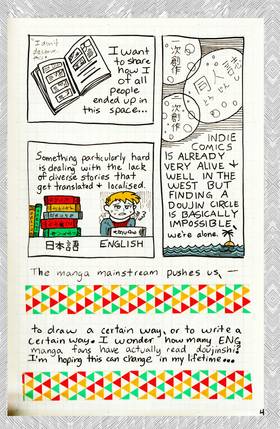 "I don't
I want
to share
how I
of all
people
ended up in
this space...
一次創作
同人誌
二次創作
INDIE
COMICS
IS ALREADY
VERY ALIVE +
WELL IN THE
WEST BUT
FINDING A
DOUJIN CIRCLE
IS BASICALLY
IMPOSSIBLE
we're alone.
Something particularly hard
is dealing with the lack
of diverse stories that
get translated + localised.
日本語
ENGLISH
The manga mainstream pushes us —
to draw a certain way, or to write a
certain way. I wonder how many ENG
manga fans have actually read doujinshi?
I'm hoping this can change in my lifetime...
4